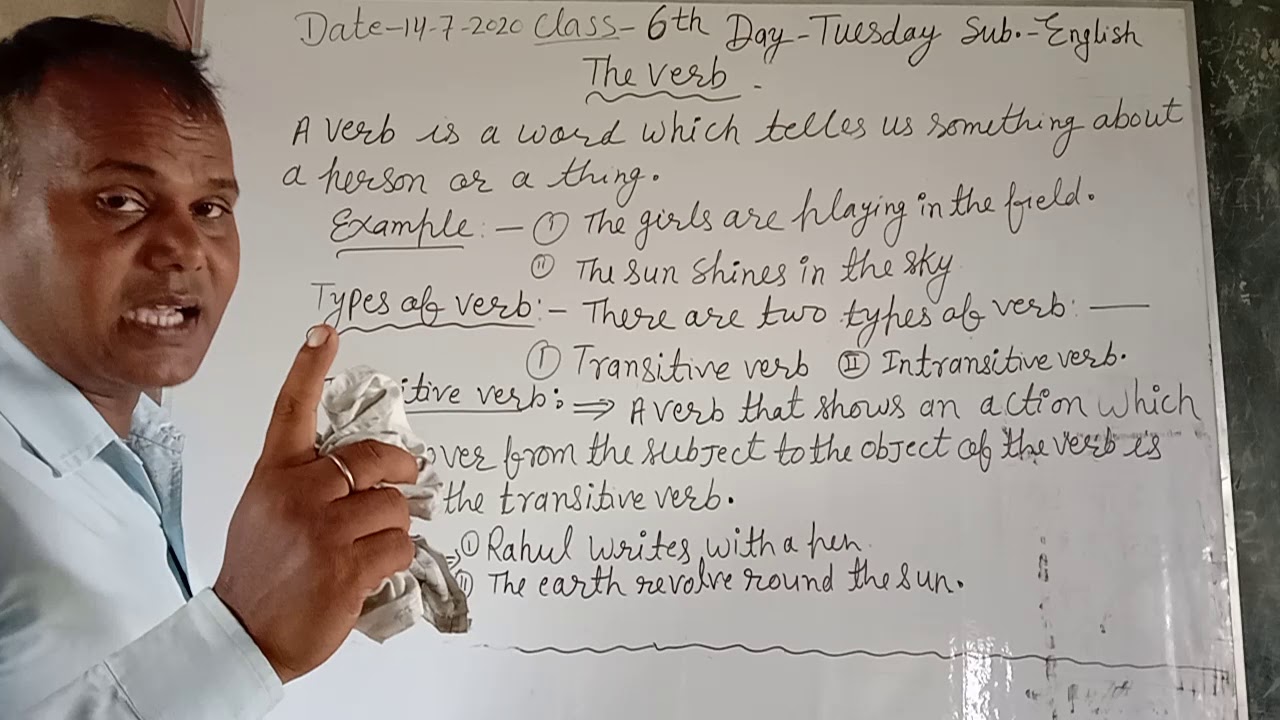 Date-14-7-2020 Class-6th Day-Tuesday Sub.-English
The verb.
A verb is a word which telles us something about
a person or a thing.
Example:- I The girls are playing in the field.
II The sun shines in the sky
Types of verb:- There are two types of verb:—
I Transitive verb II Intransitive verb.
itive verb:⇒ A verb that shows an action which
over from the subject to the object of the verb is
the transitive verb.
I Rahul writes with a pen
II The earth revolve round the sun.